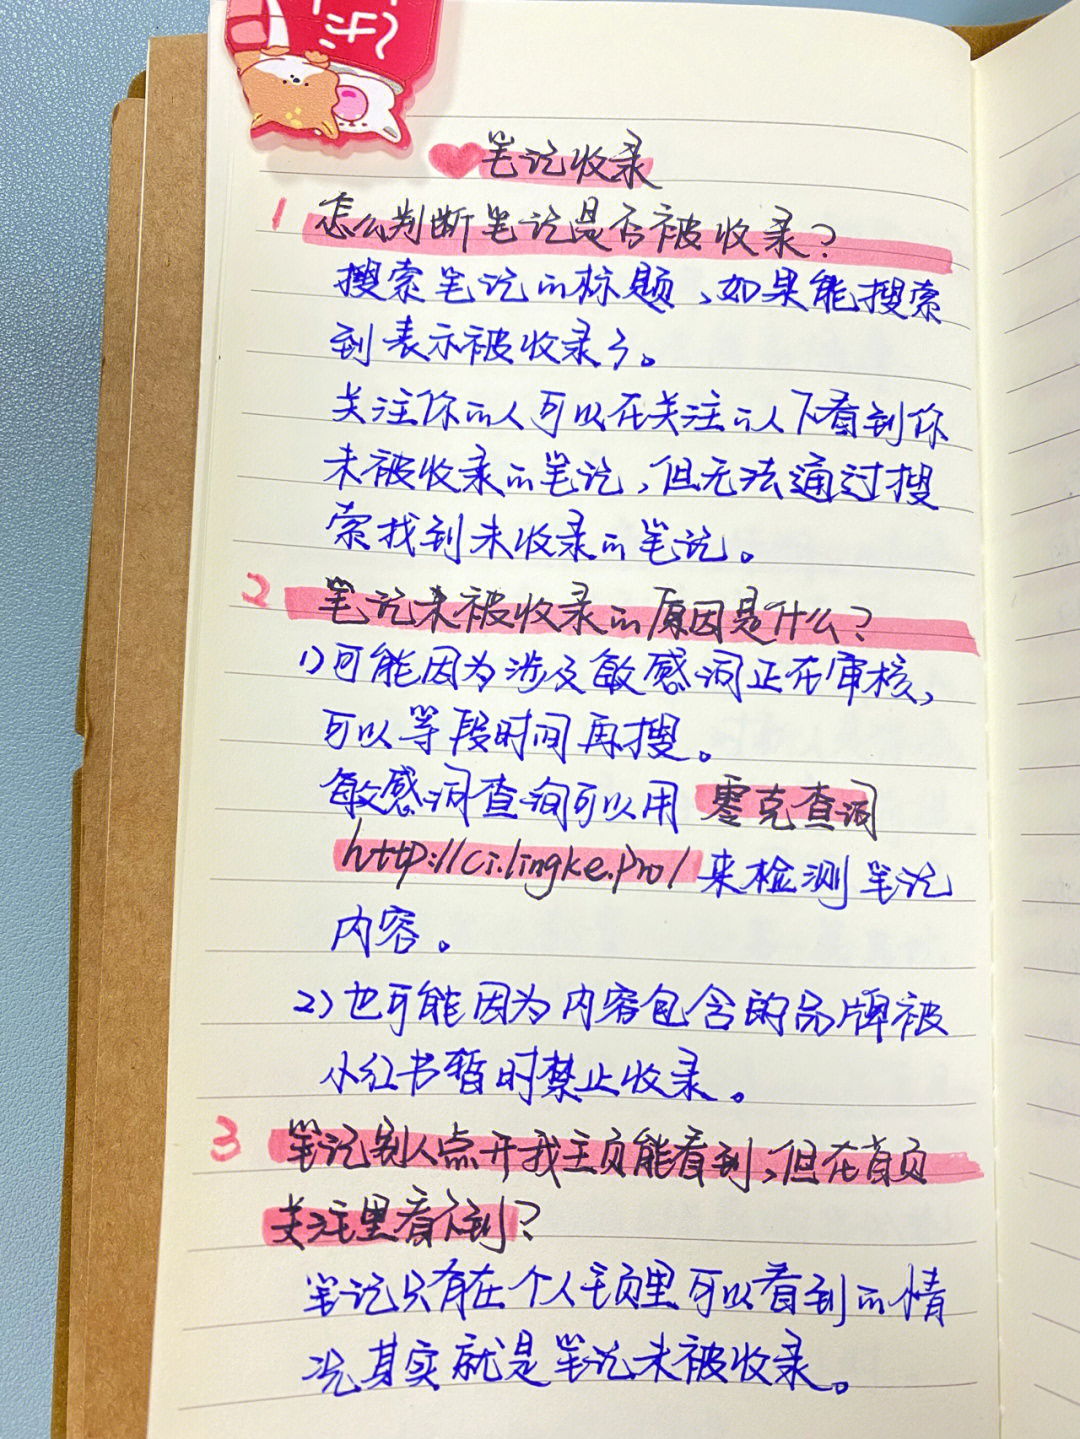 笔记收录
1 怎么判断笔记是否被收录?
搜索笔记的标题、如果能搜索
到表示被收录了。
关注你的人可以在关注的人下看到你
未被收录的笔记,但无法通过搜
索找到未收录的笔记。
2 笔记未被收录的原因是什么?
1)可能因为涉及敏感词正在审核,
可以等段时间再搜。
敏感词查询可以用 零克查词
http://ci.lingke.pro/ 来检测笔记
内容。
2)也可能因为内容包含的品牌被
小红书暂时禁止收录。
3 笔记别人点开我主页能看到,但在首页
关注里看不到?
笔记只有在个人主页里可以看到的情
况其实就是笔记未被收录。